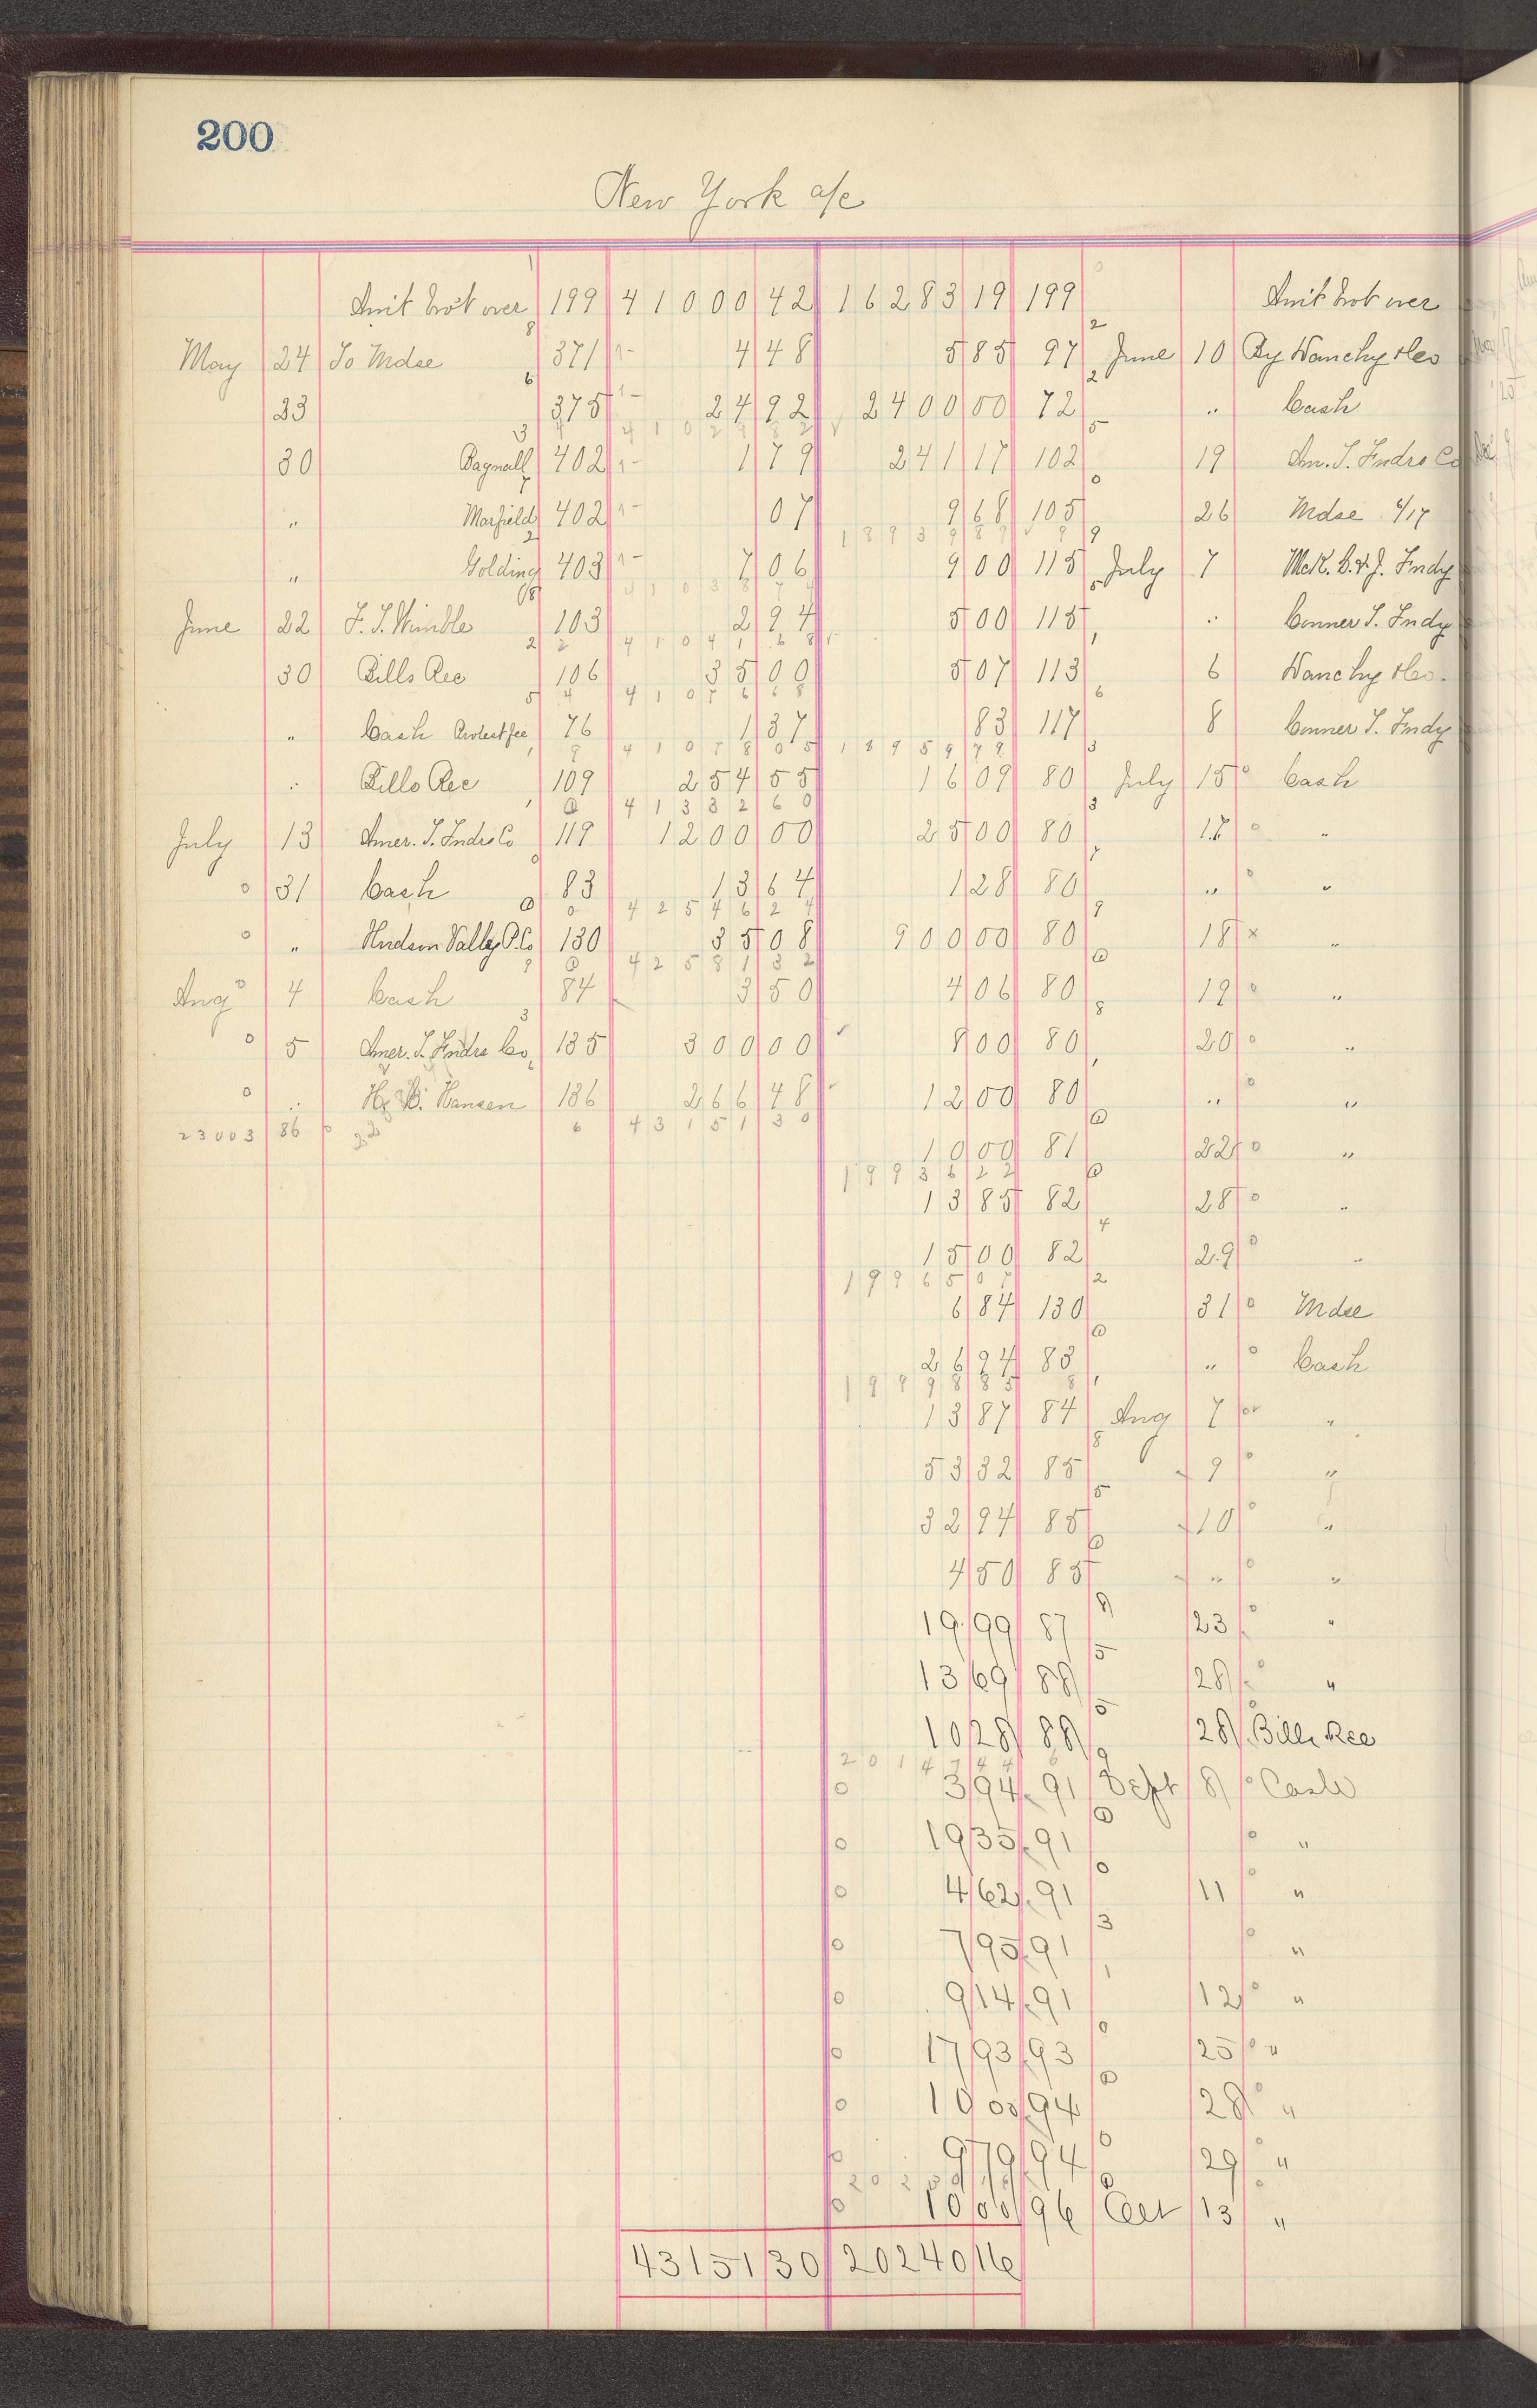 200
New York a/c
Amt brot over 199 41000 42 16283 19 199 Amt brot over
May 24 To Mdse 371 4 48 5 85 97 June 10 By Wanchy & Co
23 375 24 92 2400 00 72 " Cash
30 Bagnall 402 1 79 241 17 102 19 Am. T. Fndrs Co
" Marfield 402 07 9 68 105 26 Mdse 6/17
" Golding 403 7 06 9 00 115 July 7 McK. B. & J. Fndy
June 22 F. T. Wimble 103 2 94 5 00 115 " Conner T. Fndy
30 Bills Rec 106 35 00 5 07 113 6 Wanchy & Co.
" Cash Protest fee 76 1 37 83 117 8 Conner T. Fndy
" Bills Rec 109 254 55 16 09 80 July 15 Cash
41332 60
July 13 Amer. T. Fndrs Co 119 1200 00 25 00 80 18 "
31 Cash 83 13 64 1 28 80 " "
42546 24
" Hudson Valley P. Co 130 35 08 900 00 80 18 "
42581 32
Aug 4 Cash 84 3 50 4 06 80 19 "
5 Amer. T. Fndrs Co, 135 300 00 8 00 80 20 "
" H. Hansen 136 266 48 12 00 80 " "
23003 86 43151 30
10 00 81 22 "
19936 22
13 85 82 28 "
15 00 82 29 "
19965 07
6 84 130 31 Mdse
26 94 83 " Cash
19998 85
13 87 84 Aug 7 "
53 32 85 9 "
32 94 85 10 "
4 50 85 " "
19 99 87 23 "
13 69 88 28 "
10 28 88 28 Bills Rec
20147 44
3 94 91 Sept 8 Cash
19 35 91 "
4 62 91 11 "
7 95 91 "
9 14 91 12 "
17 93 93 25 "
10 00 94 28 "
9 79 94 29 "
10 00 96 Oct 13 "
43151 30 20240 16